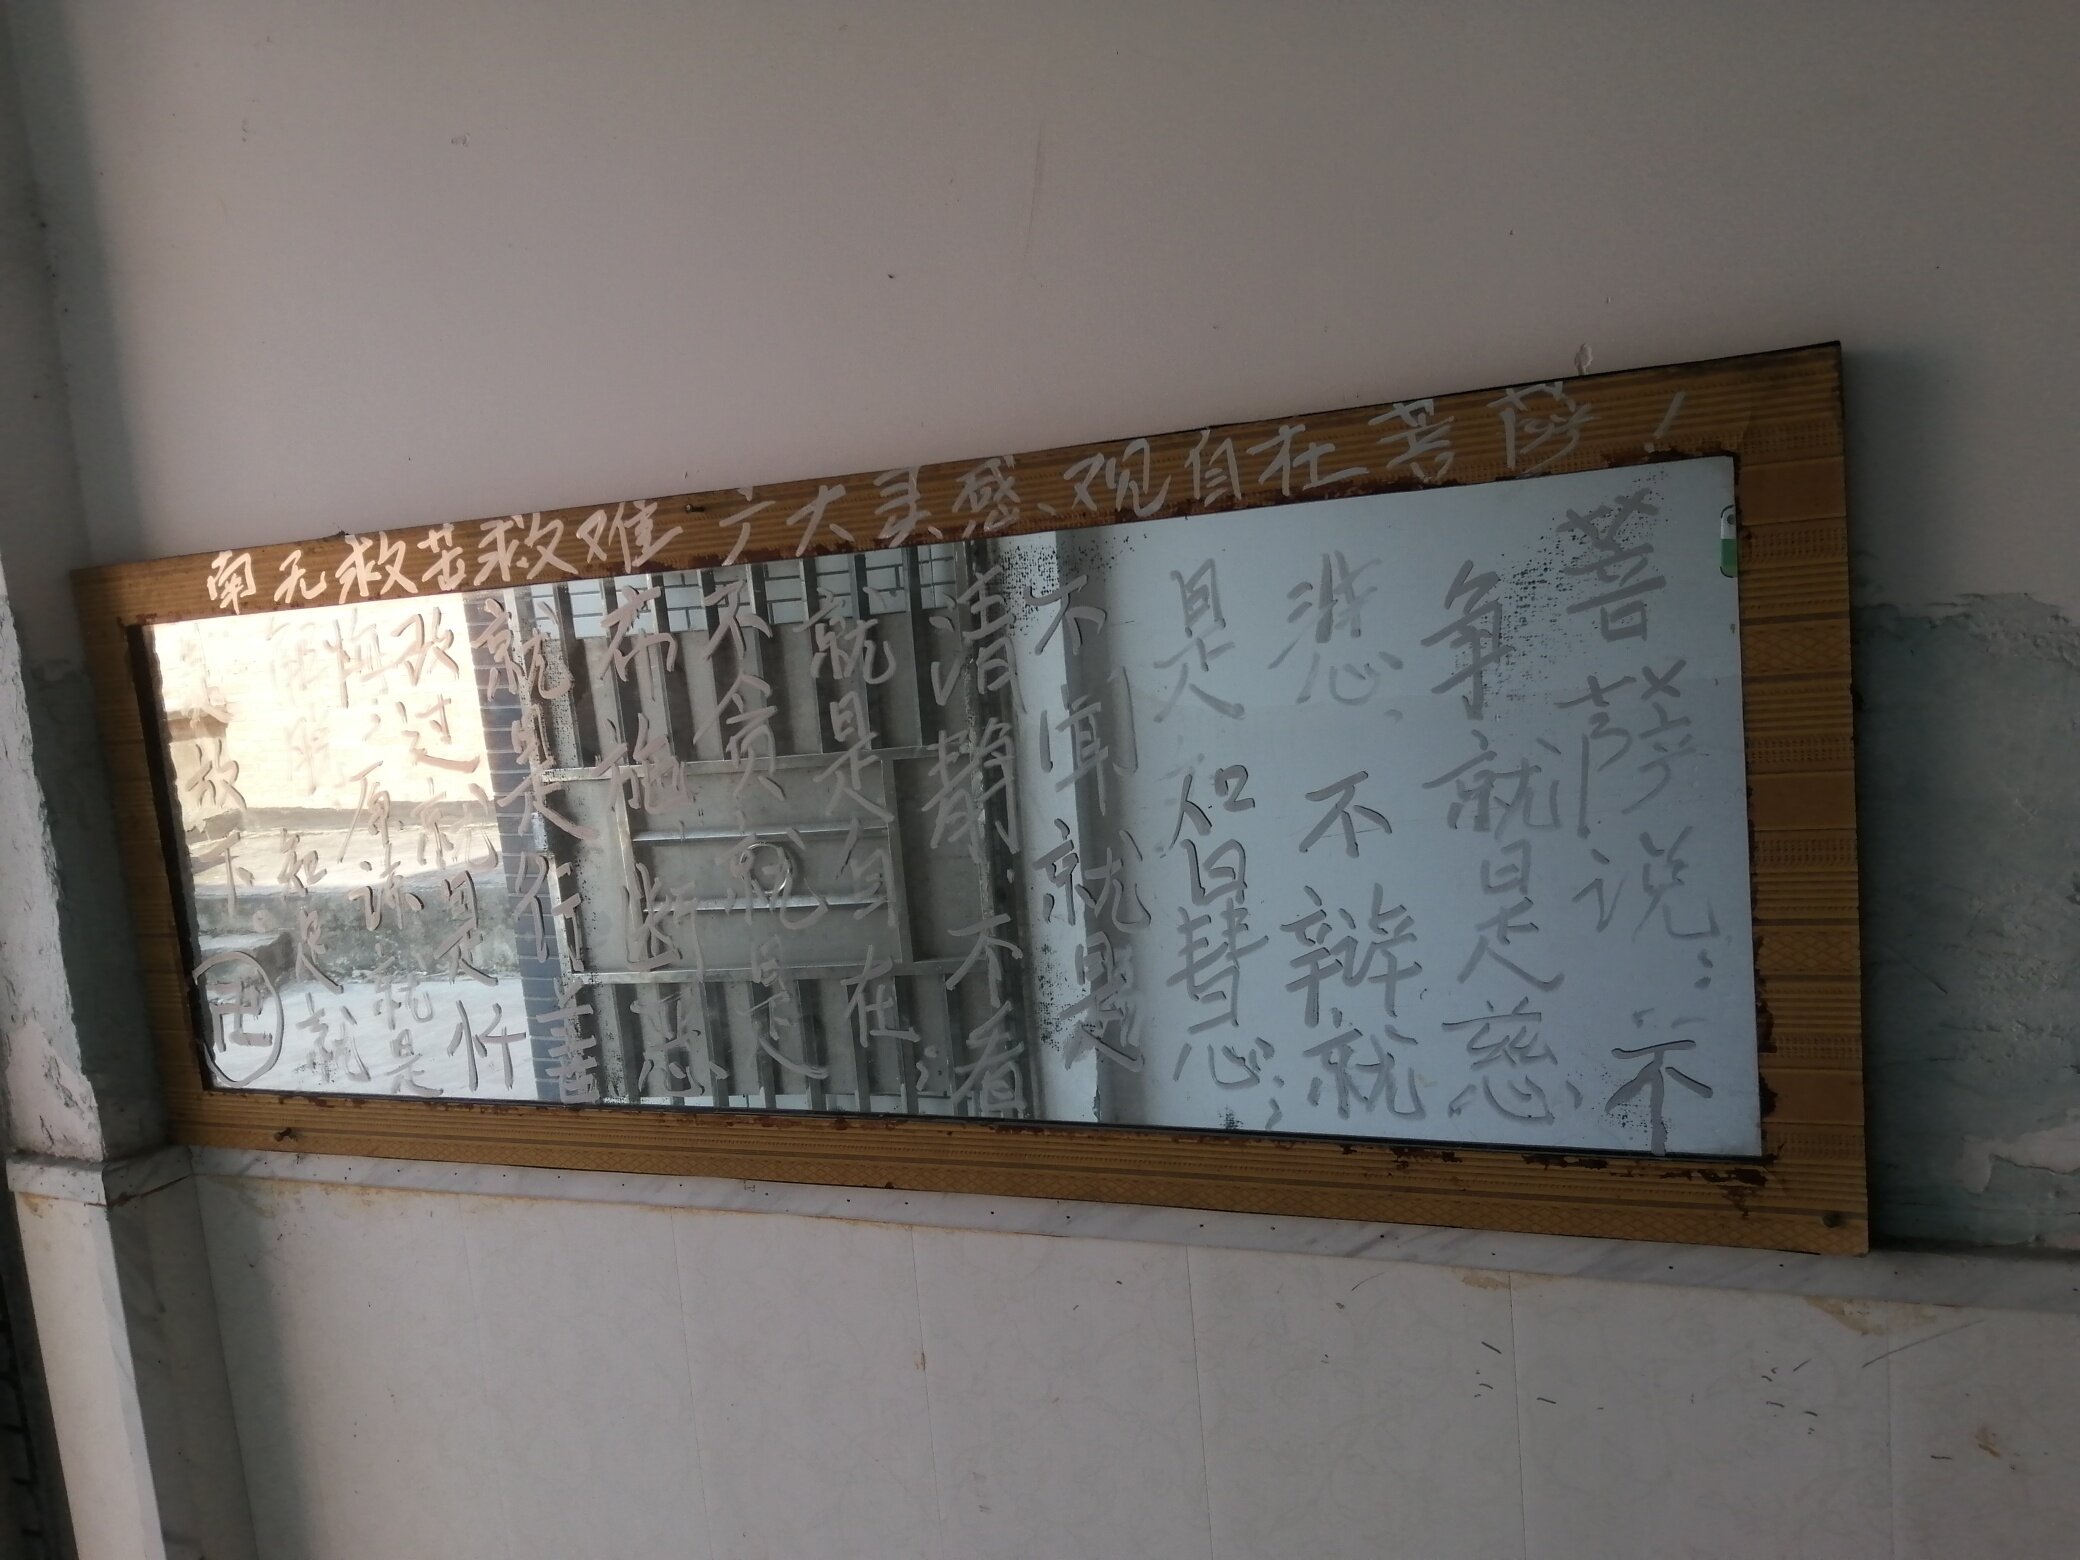 南无救苦救难广大灵感、观自在菩萨！
菩萨说：不
争就是慈
悲、不辩就
是智慧：
不闻就是
清静、不看
就是自在：
不贪就是
布施、断恶
就是行善
改过就是忏
悔、原谅就是
解脱、知足就
是放下。
卍